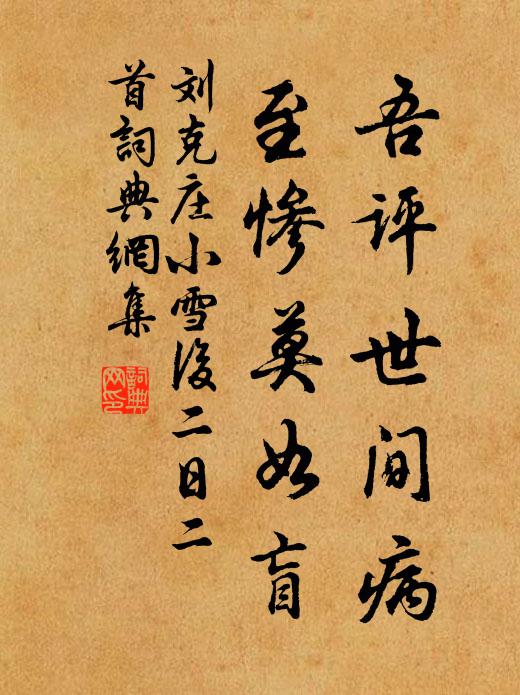 吾評世间病
至慘莫如盲
刘克庄小雪後二日二
首詞典網集
詞典
网印